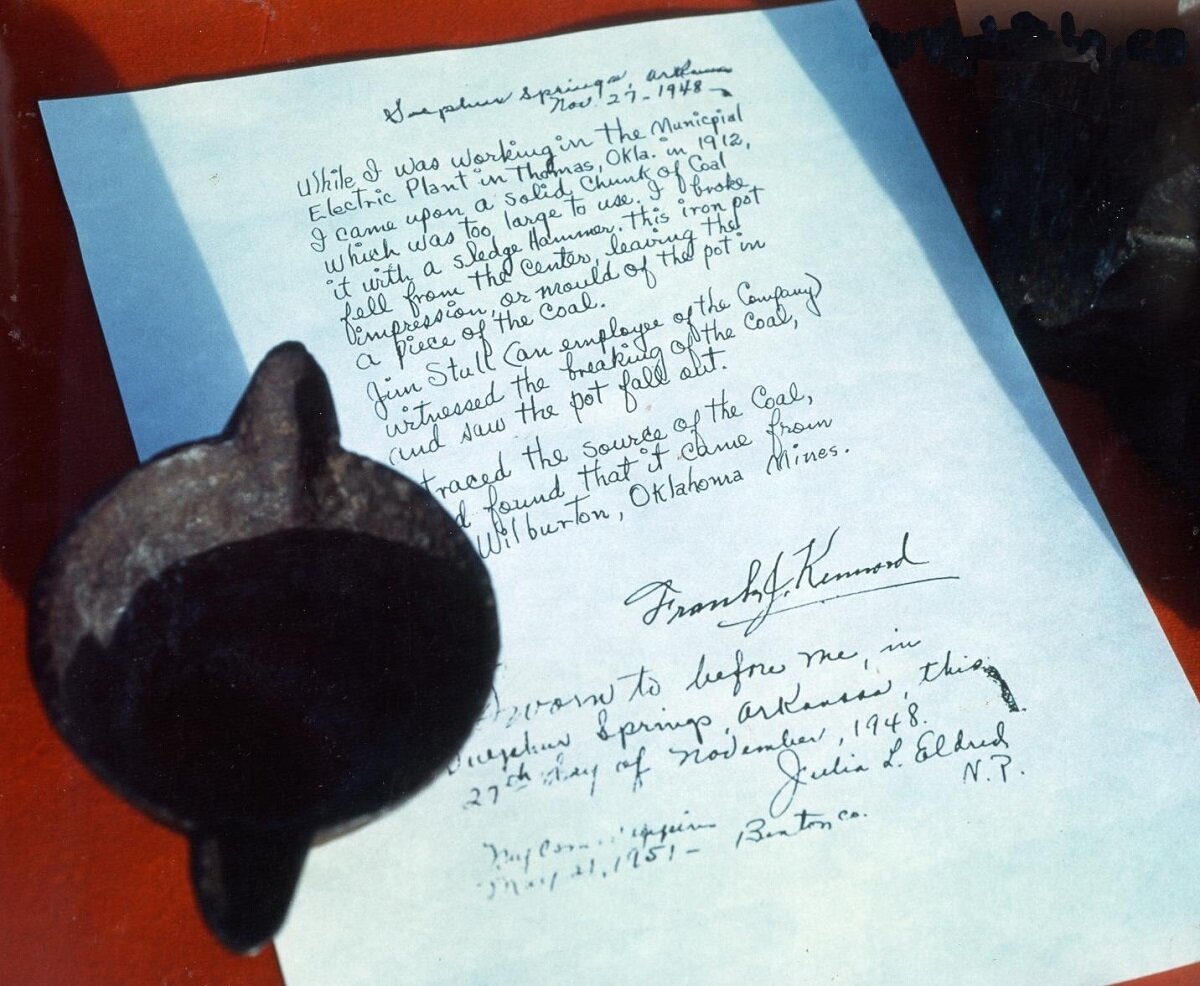 Sulphur Springs, Arkansas
Nov. 27-1948-
While I was working in the Municpial
Electric Plant in Thomas, Okla. in 1912,
I came upon a solid chunk of Coal
which was too large to use. I broke
it with a sledge Hammer. This iron pot
fell from the center, leaving the
impression, or mould of the pot in
a piece of the Coal.
Jim Stull (an employee of the Company)
witnessed the breaking of the Coal,
and saw the pot fall out.
traced the source of the Coal,
d found that it came from
Wilburton, Oklahoma Mines.
Frank J. Kennard
Sworn to before me, in
Sulphur Springs, Arkansas, this
27th day of November, 1948.
Julia L. Eldred
N.P.
My Com expires
May 21, 1951- Benton Co.